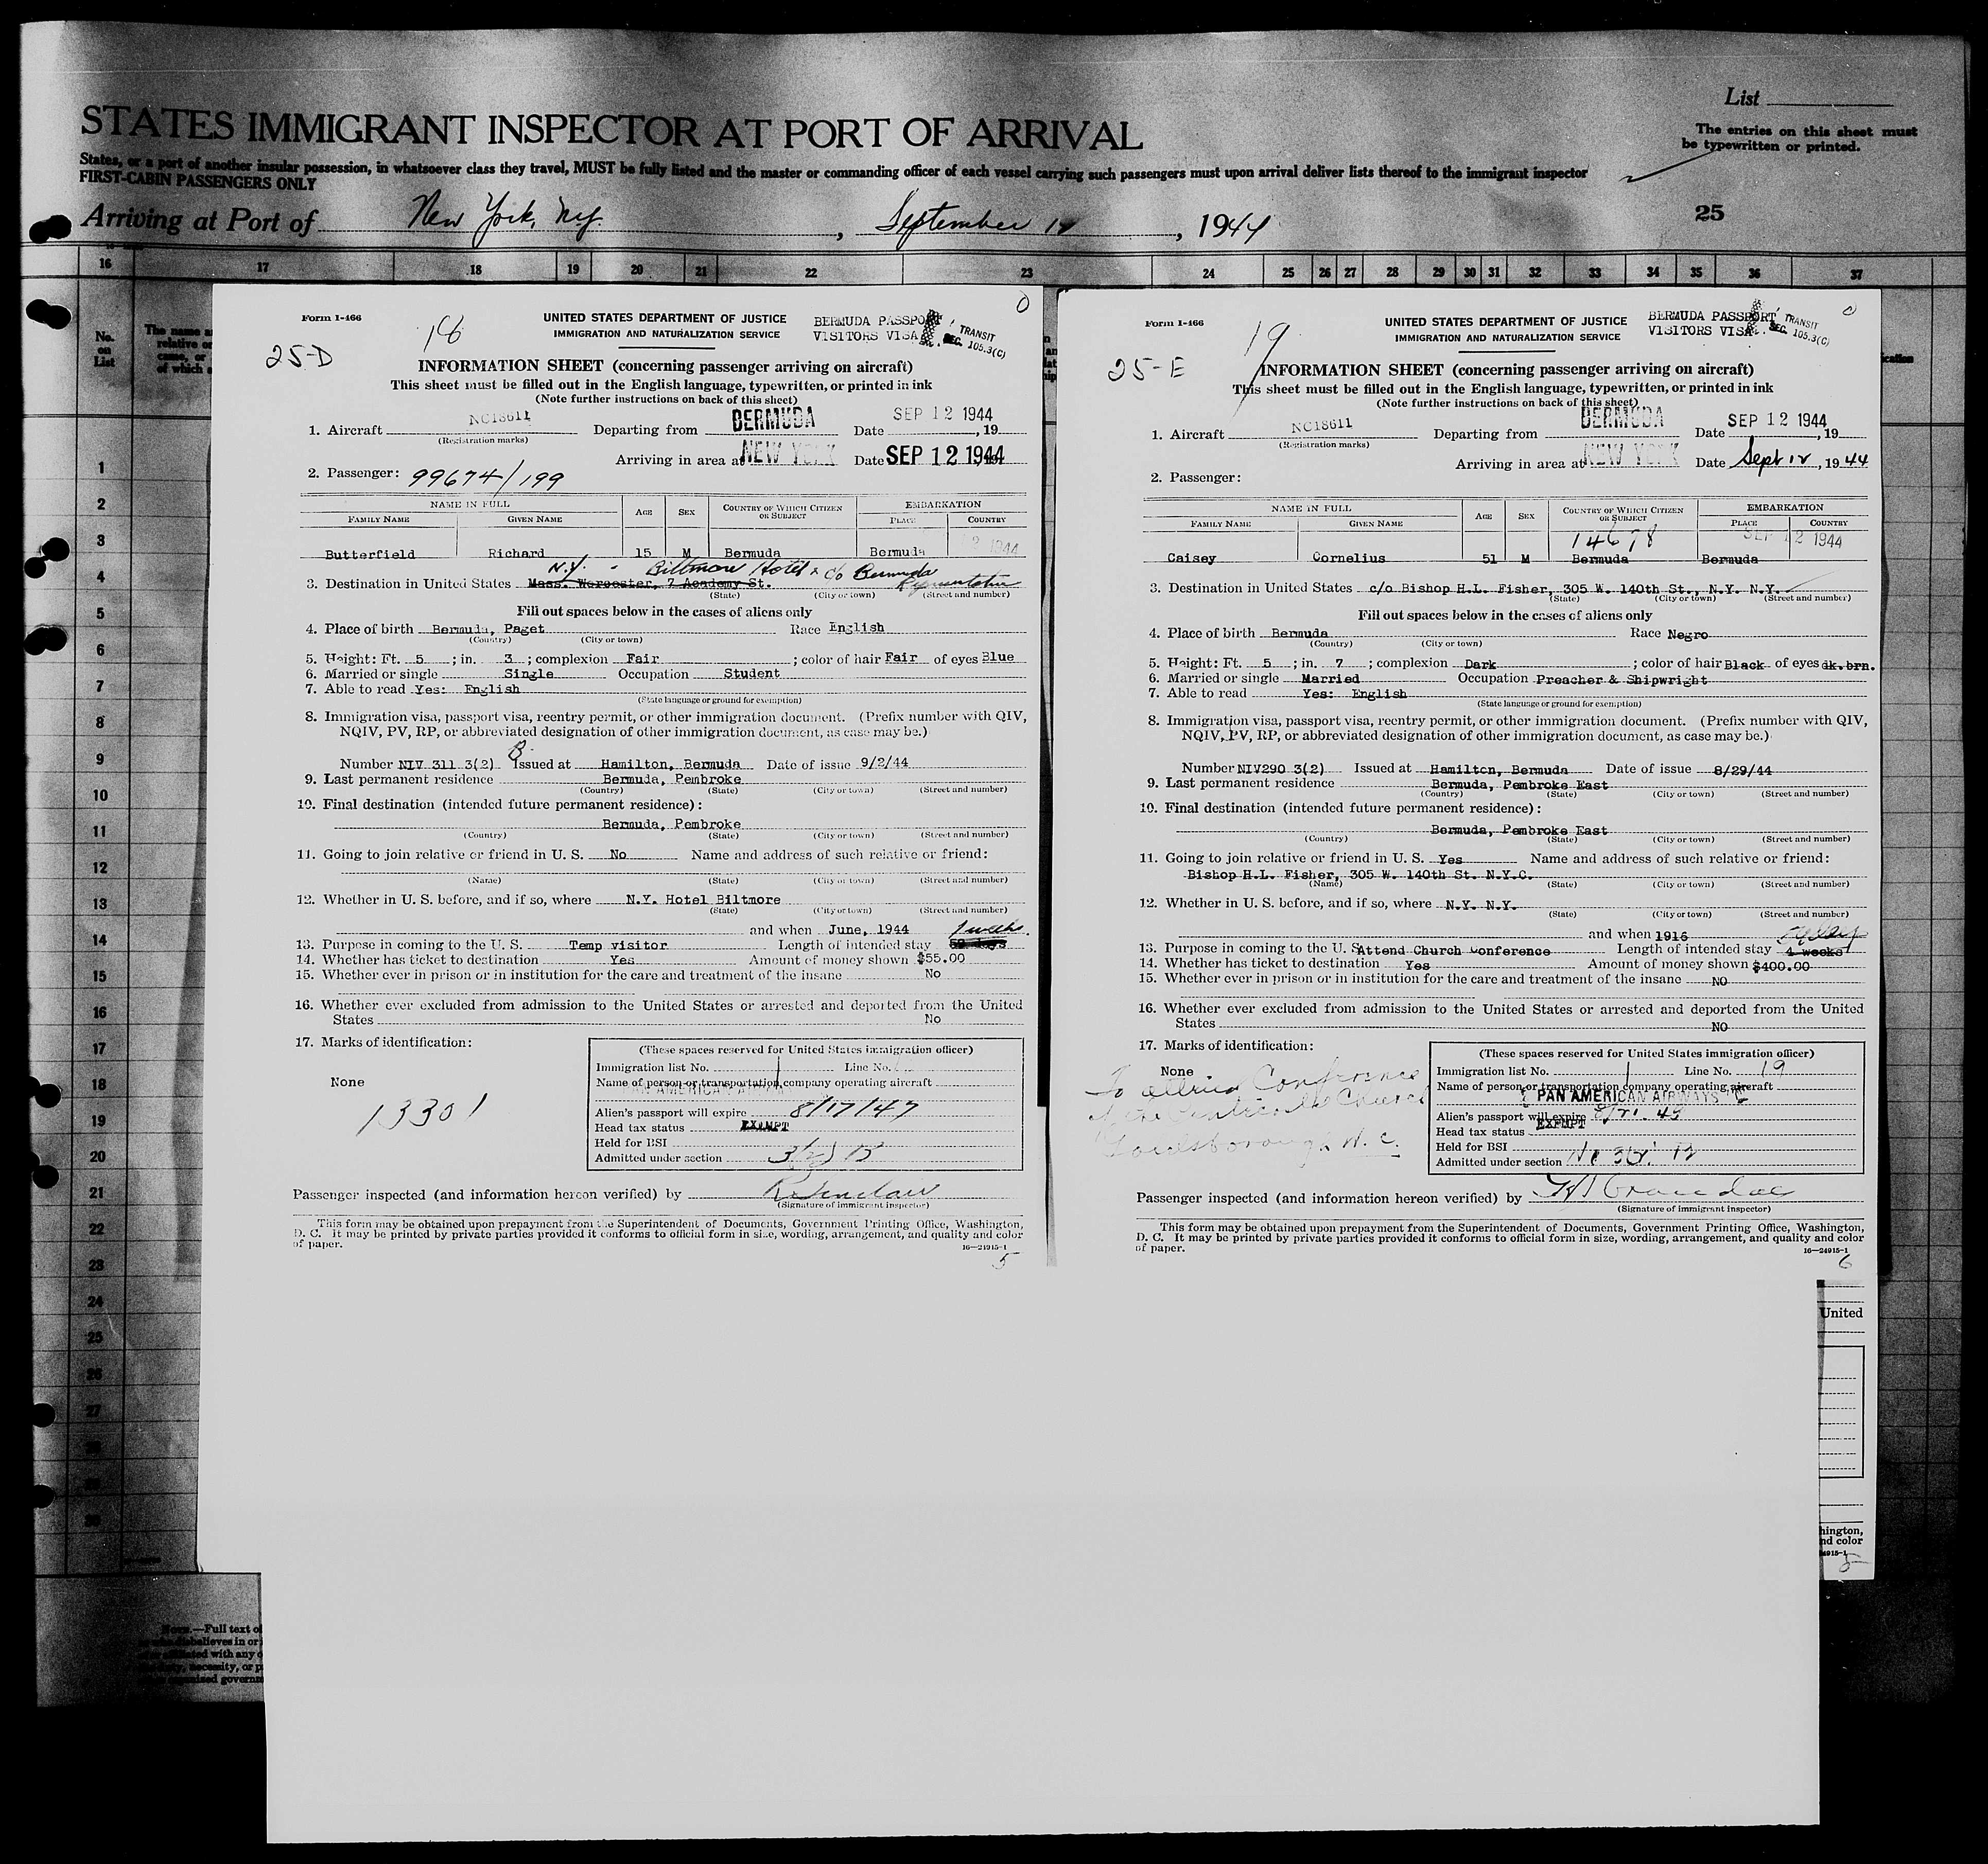 List
STATES IMMIGRANT INSPECTOR AT PORT OF ARRIVAL
The entries on this sheet must
be typewritten or printed.
States, or a port of another insular possession, in whatsoever class they travel, MUST be fully listed and the master or commanding officer of each vessel carrying such passengers must upon arrival deliver lists thereof to the immigrant inspector
FIRST-CABIN PASSENGERS ONLY
Arriving at Port of New York, N.Y. , September 12 , 1944
25
16 17 18 19 20 21 22 23 24 25 26 27 28 29 30 31 32 33 34 35 36 37
No. on List
1
2
3
4
5
6
7
8
9
10
11
12
13
14
15
16
17
18
19
20
21
22
23
24
25
26
27
Form I-466
18
25-D
UNITED STATES DEPARTMENT OF JUSTICE
IMMIGRATION AND NATURALIZATION SERVICE
BERMUDA PASSPORT
VISITORS VISA
TRANSIT
SEC. 105.3(C)
INFORMATION SHEET (concerning passenger arriving on aircraft)
This sheet must be filled out in the English language, typewritten, or printed in ink
(Note further instructions on back of this sheet)
1. Aircraft NC18611 Departing from BERMUDA Date SEP 12 1944 , 19
(Registration marks)
Arriving in area at NEW YORK Date SEP 12 1944
2. Passenger: 99674/199
NAME IN FULL AGE SEX COUNTRY OF WHICH CITIZEN OR SUBJECT EMBARKATION
FAMILY NAME GIVEN NAME PLACE COUNTRY
Butterfield Richard 15 M Bermuda Bermuda 2 1944
N.Y. - Biltmore Hotel c/o Bermuda
3. Destination in United States Mass. Worcester, 7 Academy St.
(State) (City or town) (Street and number)
Fill out spaces below in the cases of aliens only
4. Place of birth Bermuda, Paget Race English
(Country) (City or town)
5. Height: Ft. 5 ; in. 3 ; complexion Fair ; color of hair Fair of eyes Blue
6. Married or single Single Occupation Student
7. Able to read Yes: English
(State language or ground for exemption)
8. Immigration visa, passport visa, reentry permit, or other immigration document. (Prefix number with QIV,
NQIV, PV, RP, or abbreviated designation of other immigration document, as case may be.)
Number NIV 311 3(2) B Issued at Hamilton, Bermuda Date of issue 9/2/44
9. Last permanent residence Bermuda, Pembroke
(Country) (State) (City or town) (Street and number)
10. Final destination (intended future permanent residence):
Bermuda, Pembroke
(Country) (State) (City or town) (Street and number)
11. Going to join relative or friend in U. S. No Name and address of such relative or friend:
(Name) (State) (City or town) (Street and number)
12. Whether in U. S. before, and if so, where N.Y. Hotel Biltmore
(State) (City or town) (Street and number)
and when June, 1944
13. Purpose in coming to the U. S. Temp visitor Length of intended stay
14. Whether has ticket to destination Yes Amount of money shown $55.00
15. Whether ever in prison or in institution for the care and treatment of the insane No
16. Whether ever excluded from admission to the United States or arrested and deported from the United
States No
17. Marks of identification:
None
13301
(These spaces reserved for United States immigration officer)
Immigration list No. 1 Line No.
Name of person or transportation company operating aircraft
PAN AMERICAN AIRWAYS
Alien's passport will expire 8/17/47
Head tax status EXEMPT
Held for BSI
Admitted under section 3(2) B
Passenger inspected (and information hereon verified) by R. Sinclair
(Signature of immigrant inspector)
This form may be obtained upon prepayment from the Superintendent of Documents, Government Printing Office, Washington,
D. C. It may be printed by private parties provided it conforms to official form in size, wording, arrangement, and quality and color
of paper.
16—24915-1
5
Form I-466
19
25-E
UNITED STATES DEPARTMENT OF JUSTICE
IMMIGRATION AND NATURALIZATION SERVICE
BERMUDA PASSPORT
VISITORS VISA
TRANSIT
SEC. 105.3(C)
INFORMATION SHEET (concerning passenger arriving on aircraft)
This sheet must be filled out in the English language, typewritten, or printed in ink
(Note further instructions on back of this sheet)
1. Aircraft NC18611 Departing from BERMUDA Date SEP 12 1944 , 19
(Registration marks)
Arriving in area at NEW YORK Date Sept 12 , 1944
2. Passenger:
NAME IN FULL AGE SEX COUNTRY OF WHICH CITIZEN OR SUBJECT EMBARKATION
FAMILY NAME GIVEN NAME PLACE COUNTRY
14678 SEP 12 1944
Caisey Cornelius 51 M Bermuda Bermuda
3. Destination in United States c/o Bishop H.L. Fisher, 305 W. 140th St., N.Y. N.Y.
(State) (City or town) (Street and number)
Fill out spaces below in the cases of aliens only
4. Place of birth Bermuda Race Negro
(Country) (City or town)
5. Height: Ft. 5 ; in. 7 ; complexion Dark ; color of hair Black of eyes dk.brn.
6. Married or single Married Occupation Preacher & Shipwright
7. Able to read Yes: English
(State language or ground for exemption)
8. Immigration visa, passport visa, reentry permit, or other immigration document. (Prefix number with QIV,
NQIV, PV, RP, or abbreviated designation of other immigration document, as case may be.)
Number NIV290 3(2) Issued at Hamilton, Bermuda Date of issue 8/29/44
9. Last permanent residence Bermuda, Pembroke East
(Country) (State) (City or town) (Street and number)
10. Final destination (intended future permanent residence):
Bermuda, Pembroke East
(Country) (State) (City or town) (Street and number)
11. Going to join relative or friend in U. S. Yes Name and address of such relative or friend:
Bishop H.L. Fisher, 305 W. 140th St. N.Y.C.
(Name) (State) (City or town) (Street and number)
12. Whether in U. S. before, and if so, where N.Y. N.Y.
(State) (City or town) (Street and number)
and when 1916
13. Purpose in coming to the U. S. Attend Church Conference Length of intended stay 4 weeks
14. Whether has ticket to destination Yes Amount of money shown $400.00
15. Whether ever in prison or in institution for the care and treatment of the insane NO
16. Whether ever excluded from admission to the United States or arrested and deported from the United
States NO
17. Marks of identification:
None
To attend Conference
Church
Goldsborough N. C.
(These spaces reserved for United States immigration officer)
Immigration list No. 1 Line No. 19
Name of person or transportation company operating aircraft
PAN AMERICAN AIRWAYS
Alien's passport will expire
Head tax status EXEMPT
Held for BSI
Admitted under section
Passenger inspected (and information hereon verified) by
(Signature of immigrant inspector)
This form may be obtained upon prepayment from the Superintendent of Documents, Government Printing Office, Washington,
D. C. It may be printed by private parties provided it conforms to official form in size, wording, arrangement, and quality and color
of paper.
16—24915-1
6
United
hington,
nd color
24915-1
5
NOTE.—Full text of
disbelieves in or
with any o
necessity, or p
governm